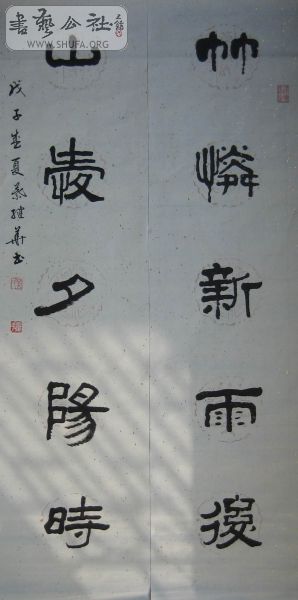 竹憐新雨後
山愛夕陽時
戊子春夏蔡繼華書
書藝公社
WWW.SHUFA.ORG